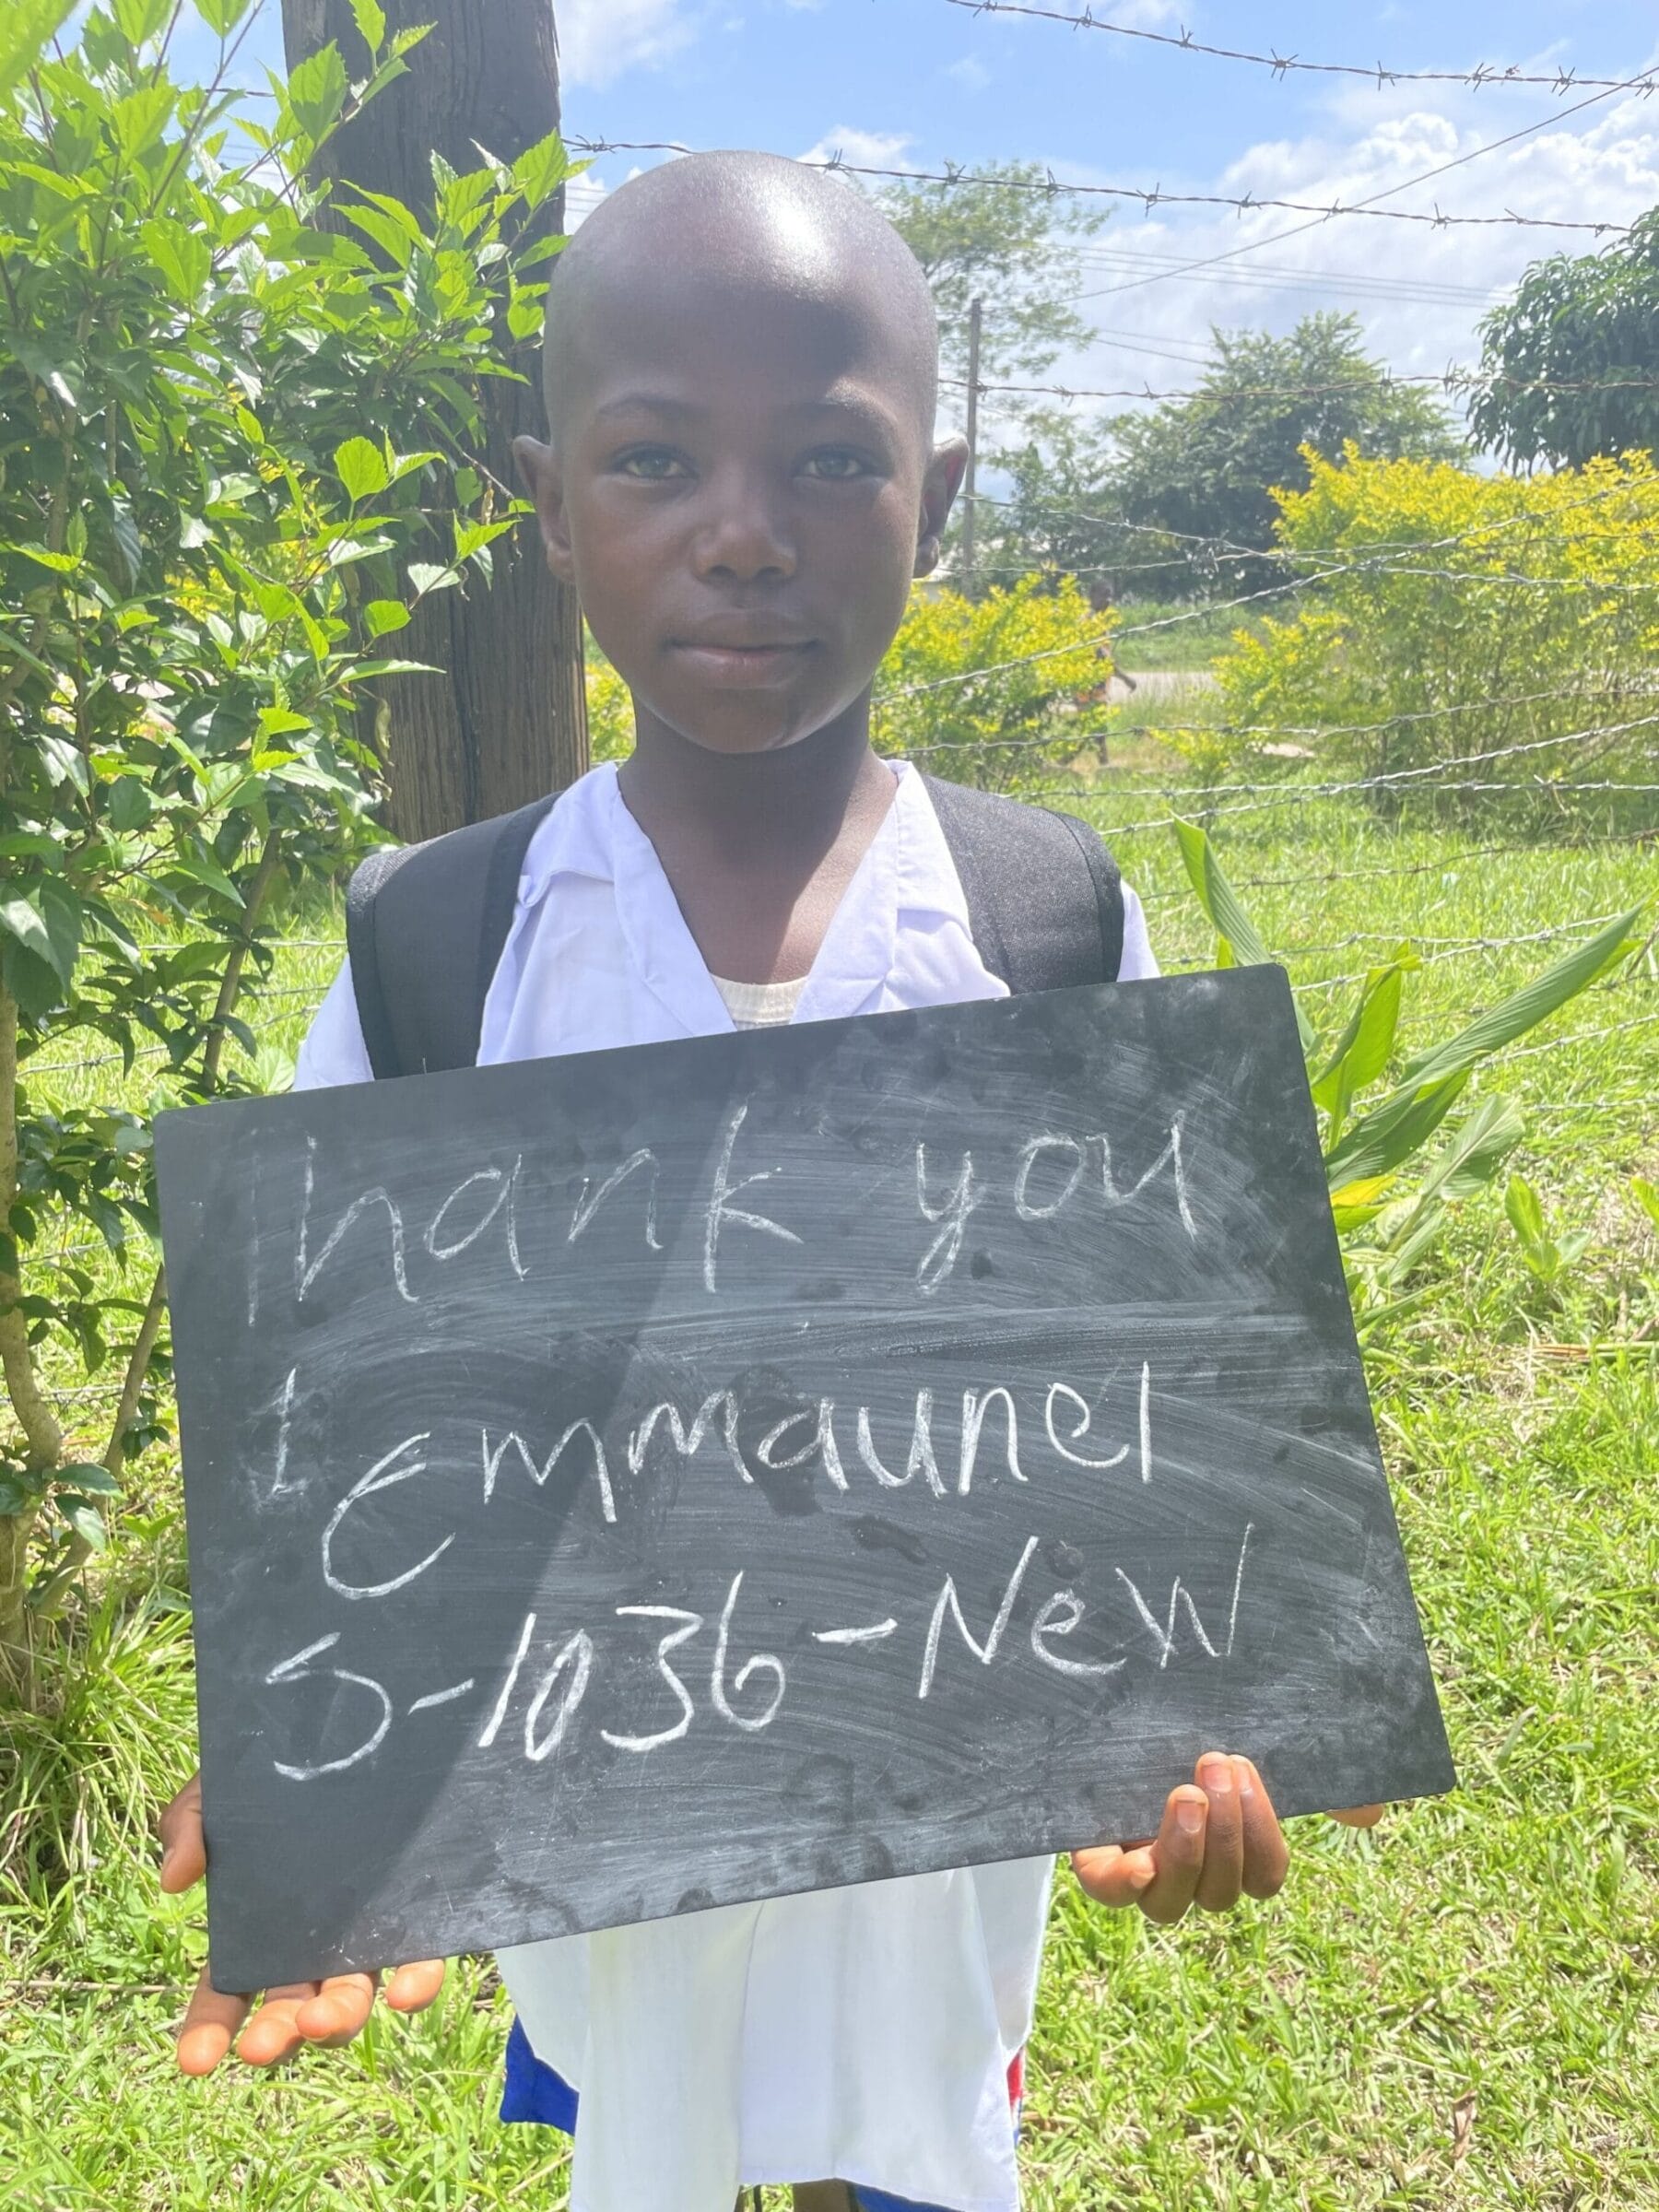 Thank you
I
Emmaunel
S-1036-New